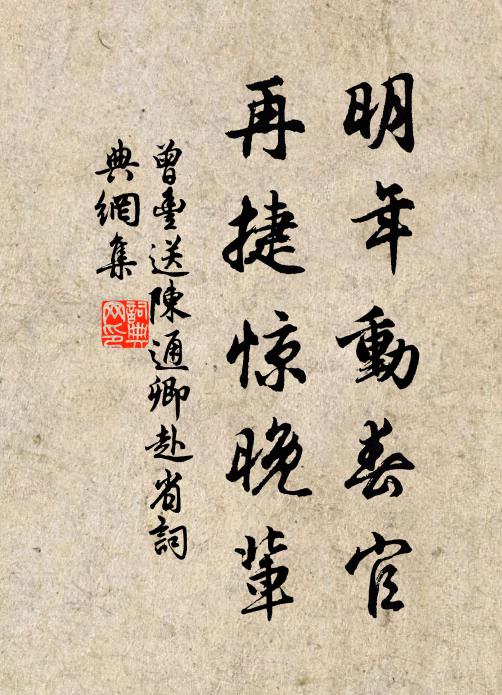 明年動春官
再捷惊晚輩
曾豊送陳通卿赴省詞
典網集
詞典網印